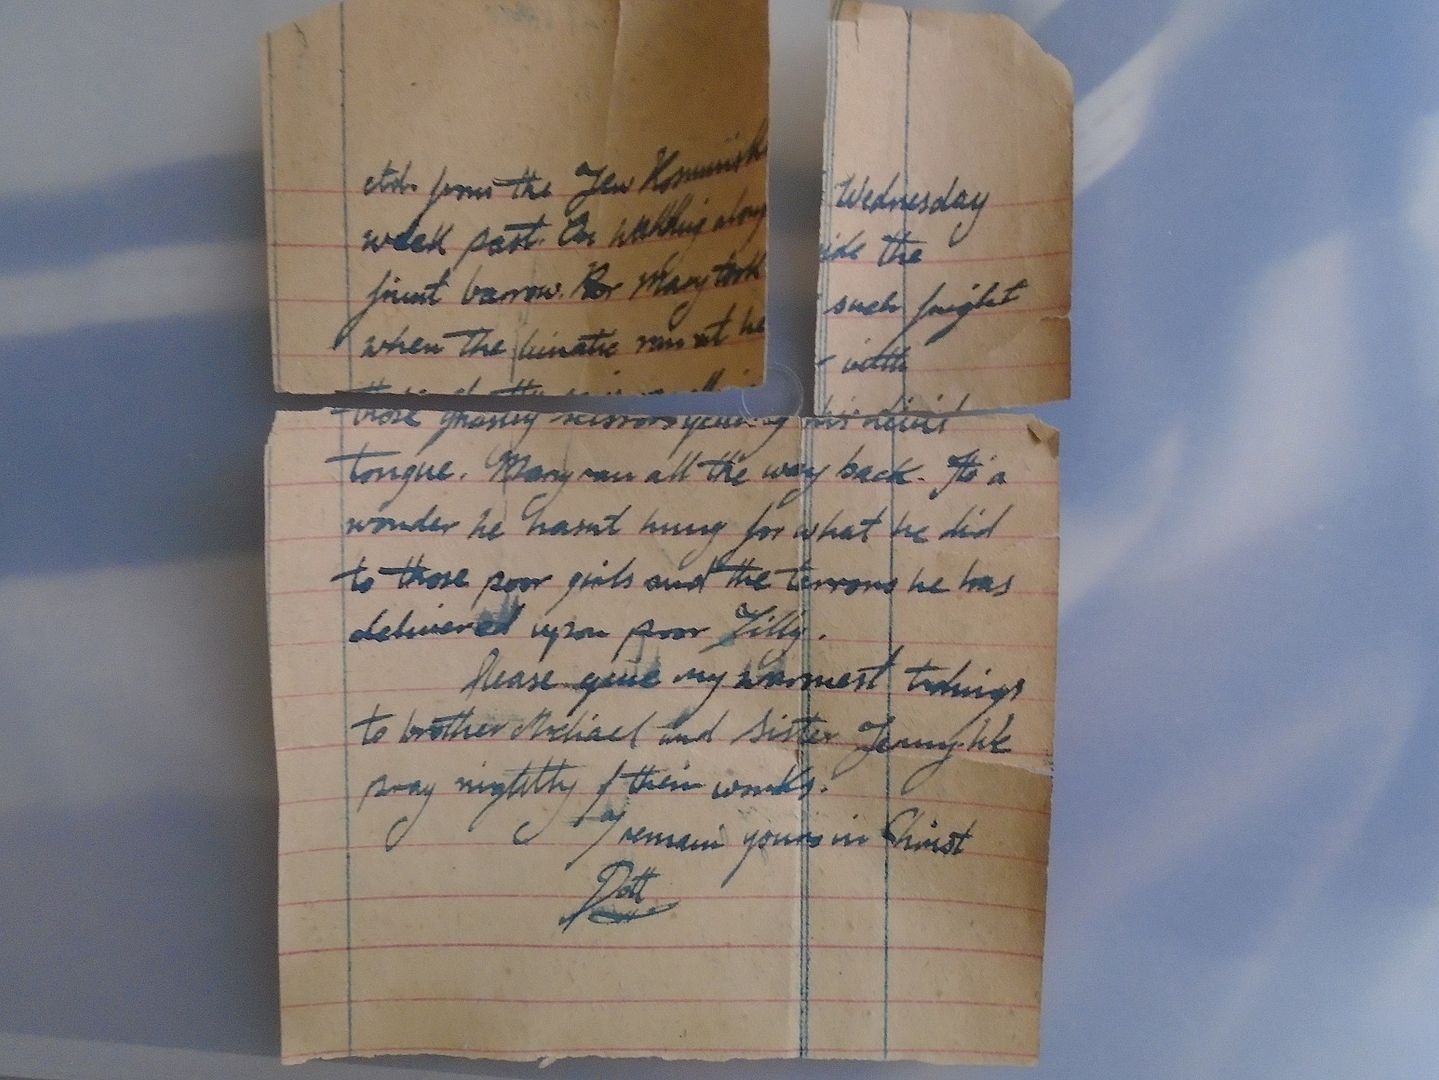 from the Jew Kosminsk Wednesday
week past. On walking along ide the
fruit barrow. Poor Mary took such fright
when the lunatic ran at he with
those ghastly scissors yelling his devil
tongue. Mary ran all the way back. Its a
wonder he hasnt hung for what he did
to those poor girls and the terrors he has
delivered upon poor Tilly.
Please give my warmest tidings
to brother Michael and Sister Jenny. We
pray nightly f their works.
I remain yours in Christ